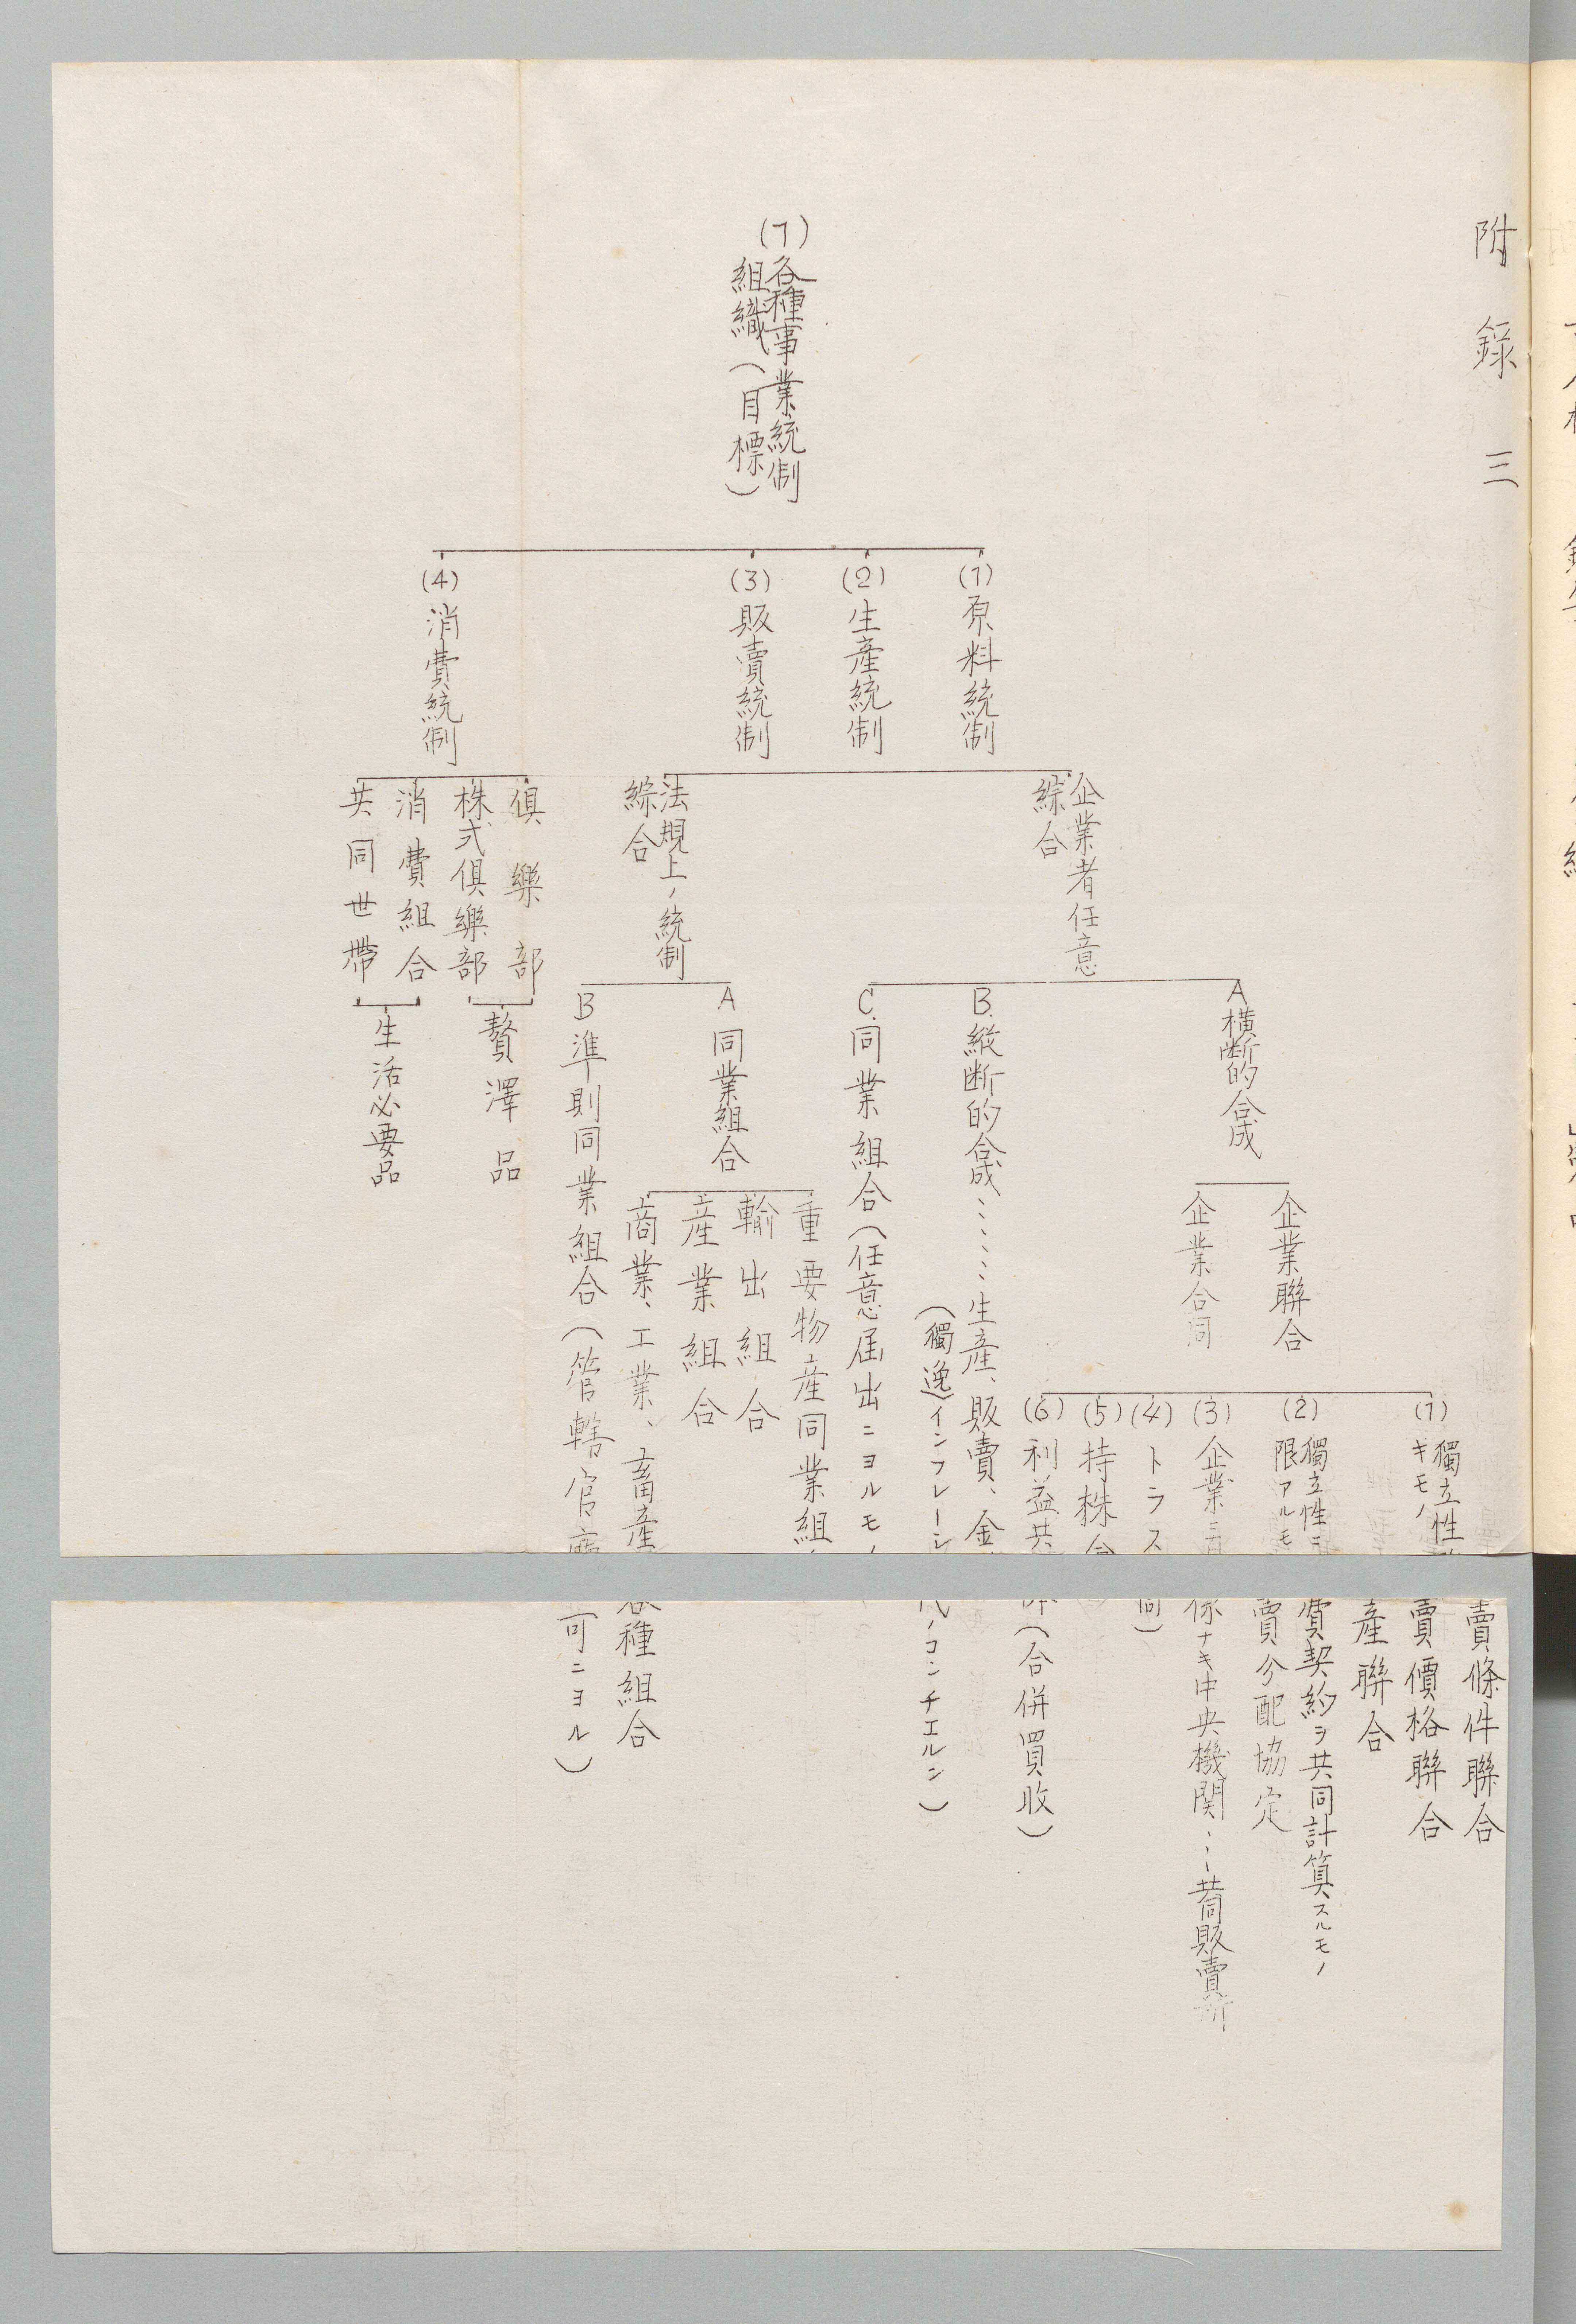 附錄三
(1)各種事業統制
組織(目標)
(1)原料統制
(2)生產統制
(3)販賣統制
(4)消費統制
企業者任意
綜合
法規上ノ統制
綜合
俱樂部
株式俱樂部
消費組合
共同世帶
贅澤品
生活必要品
A橫斷的合成
B.縱斷的合成……生產、販賣、金
(獨逸)インフレーシ
C.同業組合(任意届出ニヨルモノ
A同業組合
B準則同業組合(管轄官
企業聯合
企業合同
重要物產同業組
輸出組合
產業組合
商業、工業、畜產
(1)獨立性
キモノ
(2)獨立性ニ
限アルモ
(3)企業ニ
(4)トラス
(5)持株
(6)利益共
賣條件聯合
賣價格聯合
產聯合
賣契約ヲ共同計算スルモノ
賣分配協定
係ナキ中央機関……共同販賣所
同)
(合併買收)
代ノコンチエルン)
各種組合
可ニヨル)